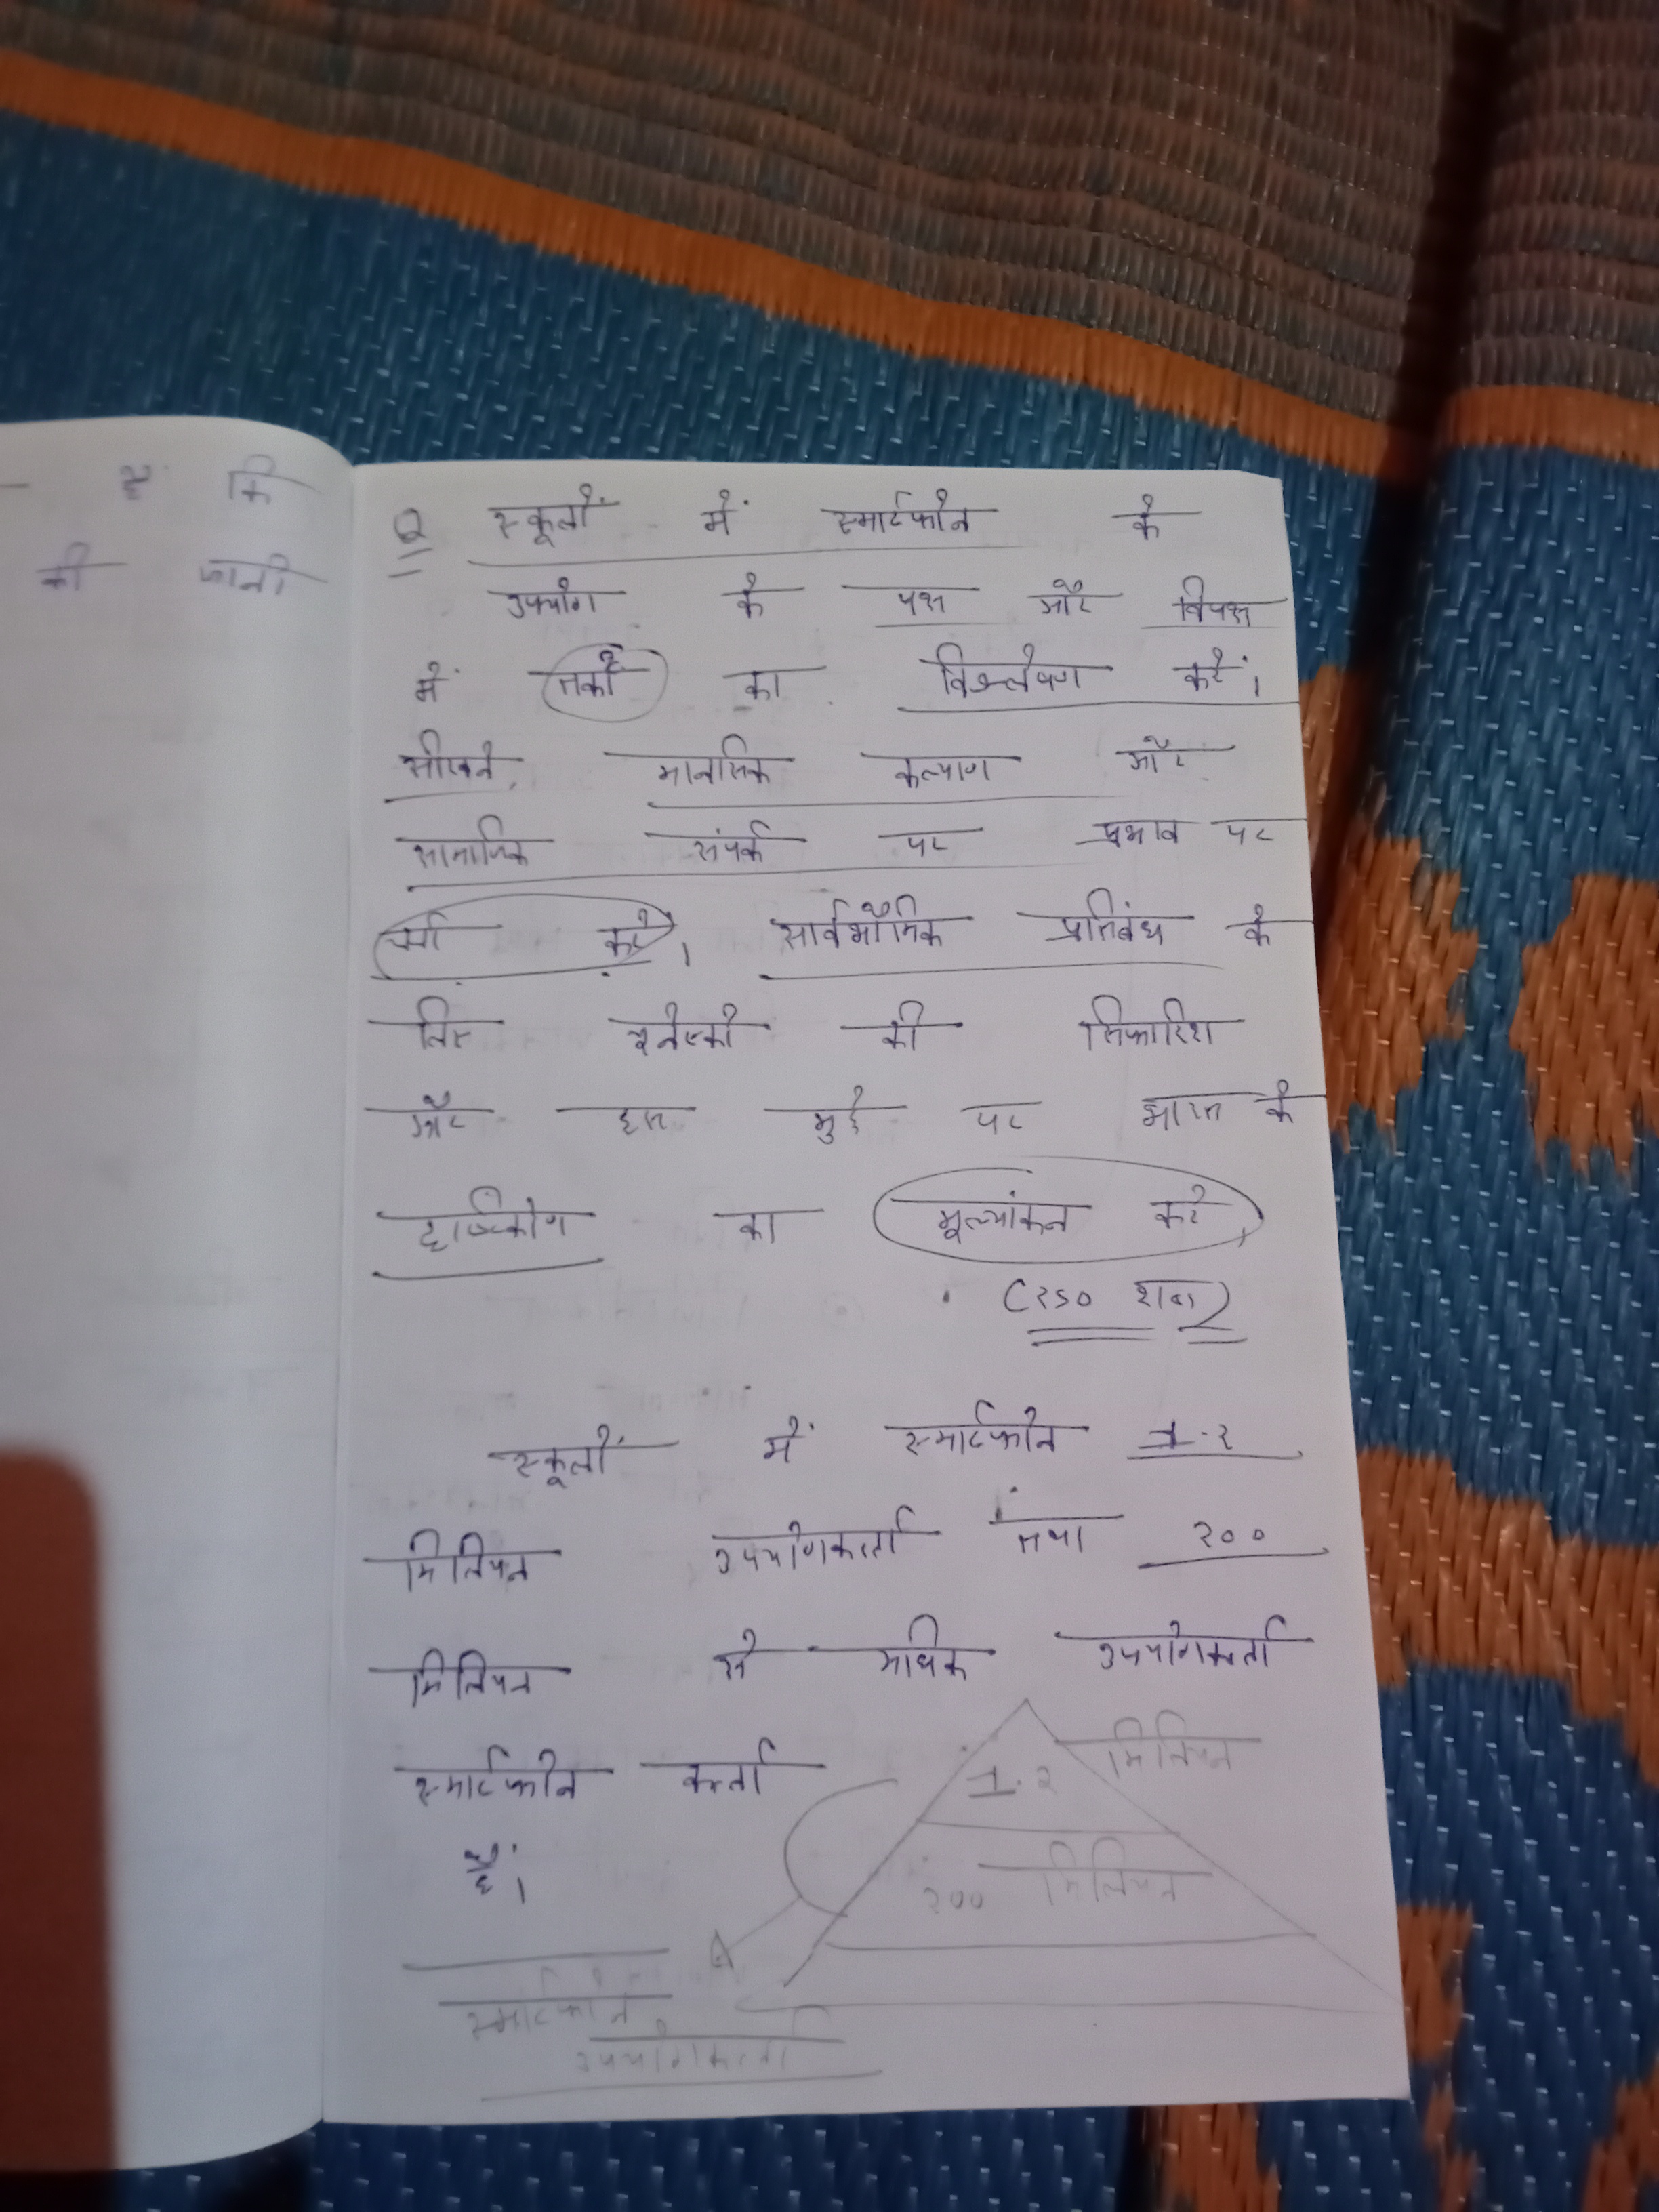 है कि
की जाती
Q स्कूलों में स्मार्टफोन के
उपयोग के पक्ष और विपक्ष
में तर्कों का विश्लेषण करें।
सीखने, मानसिक कल्याण और
सामाजिक संपर्क पर प्रभाव पर
चर्चा करें। सार्वभौमिक प्रतिबंध के
लिए यूनेस्को की सिफारिश
और इस मुद्दे पर भारत के
दृष्टिकोण का मूल्यांकन करें
(250 शब्द)
स्कूलों में स्मार्टफोन 1.2
मिलियन उपयोगकर्ता तथा 200
मिलियन से अधिक उपयोगकर्ता
स्मार्टफोन कर्ता
हैं।
1.2 मिलियन
200 मिलियन
स्मार्टफोन
उपयोगकर्ता